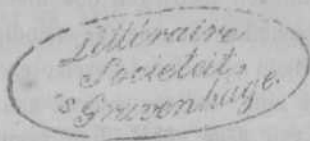 Littéraire
Societeit
's Gravenhage.